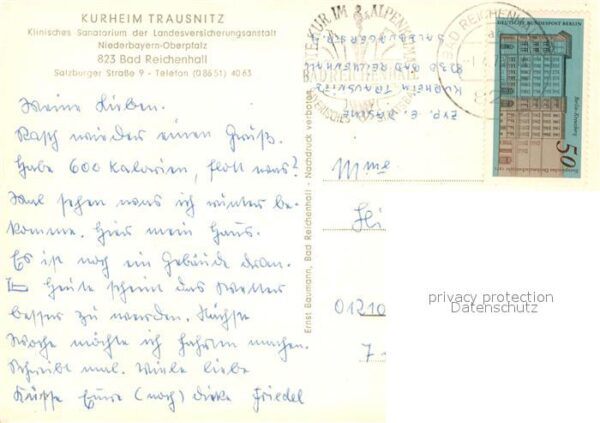 KURHEIM TRAUSNITZ
Klinisches Sanatorium der Landesversicherungsanstalt
Niederbayern-Oberpfalz
823 Bad Reichenhall
Salzburger Straße 9 - Telefon (08651) 4063
Meine Lieben.
Rasch wieder einen Gruß.
Habe 600 Kalorien, flott was?
Mal sehen was ich runter be-
komme. Hier mein Haus.
Es ist noch ein Gebäude dran.
Heute scheint das Wetter
besser zu werden. Nächste
Woche möchte ich Fahrten machen.
Schreibt mal. Viele liebe
Küsse Eure (noch) dicke Friedel
Ernst Baumann, Bad Reichenhall - Nachdruck verboten
KURHEIM TRAUSNITZ
8230 BAD REICHENHALL
SALZBURGERSTR. 9
KUR IM ALPENKLIMA
BAD REICHENHALL
BAYERISCHES STAATSBAD
BAD REICHENHALL
DEUTSCHE BUNDESPOST BERLIN
50
Mme.
01210
7
privacy protection
Datenschutz